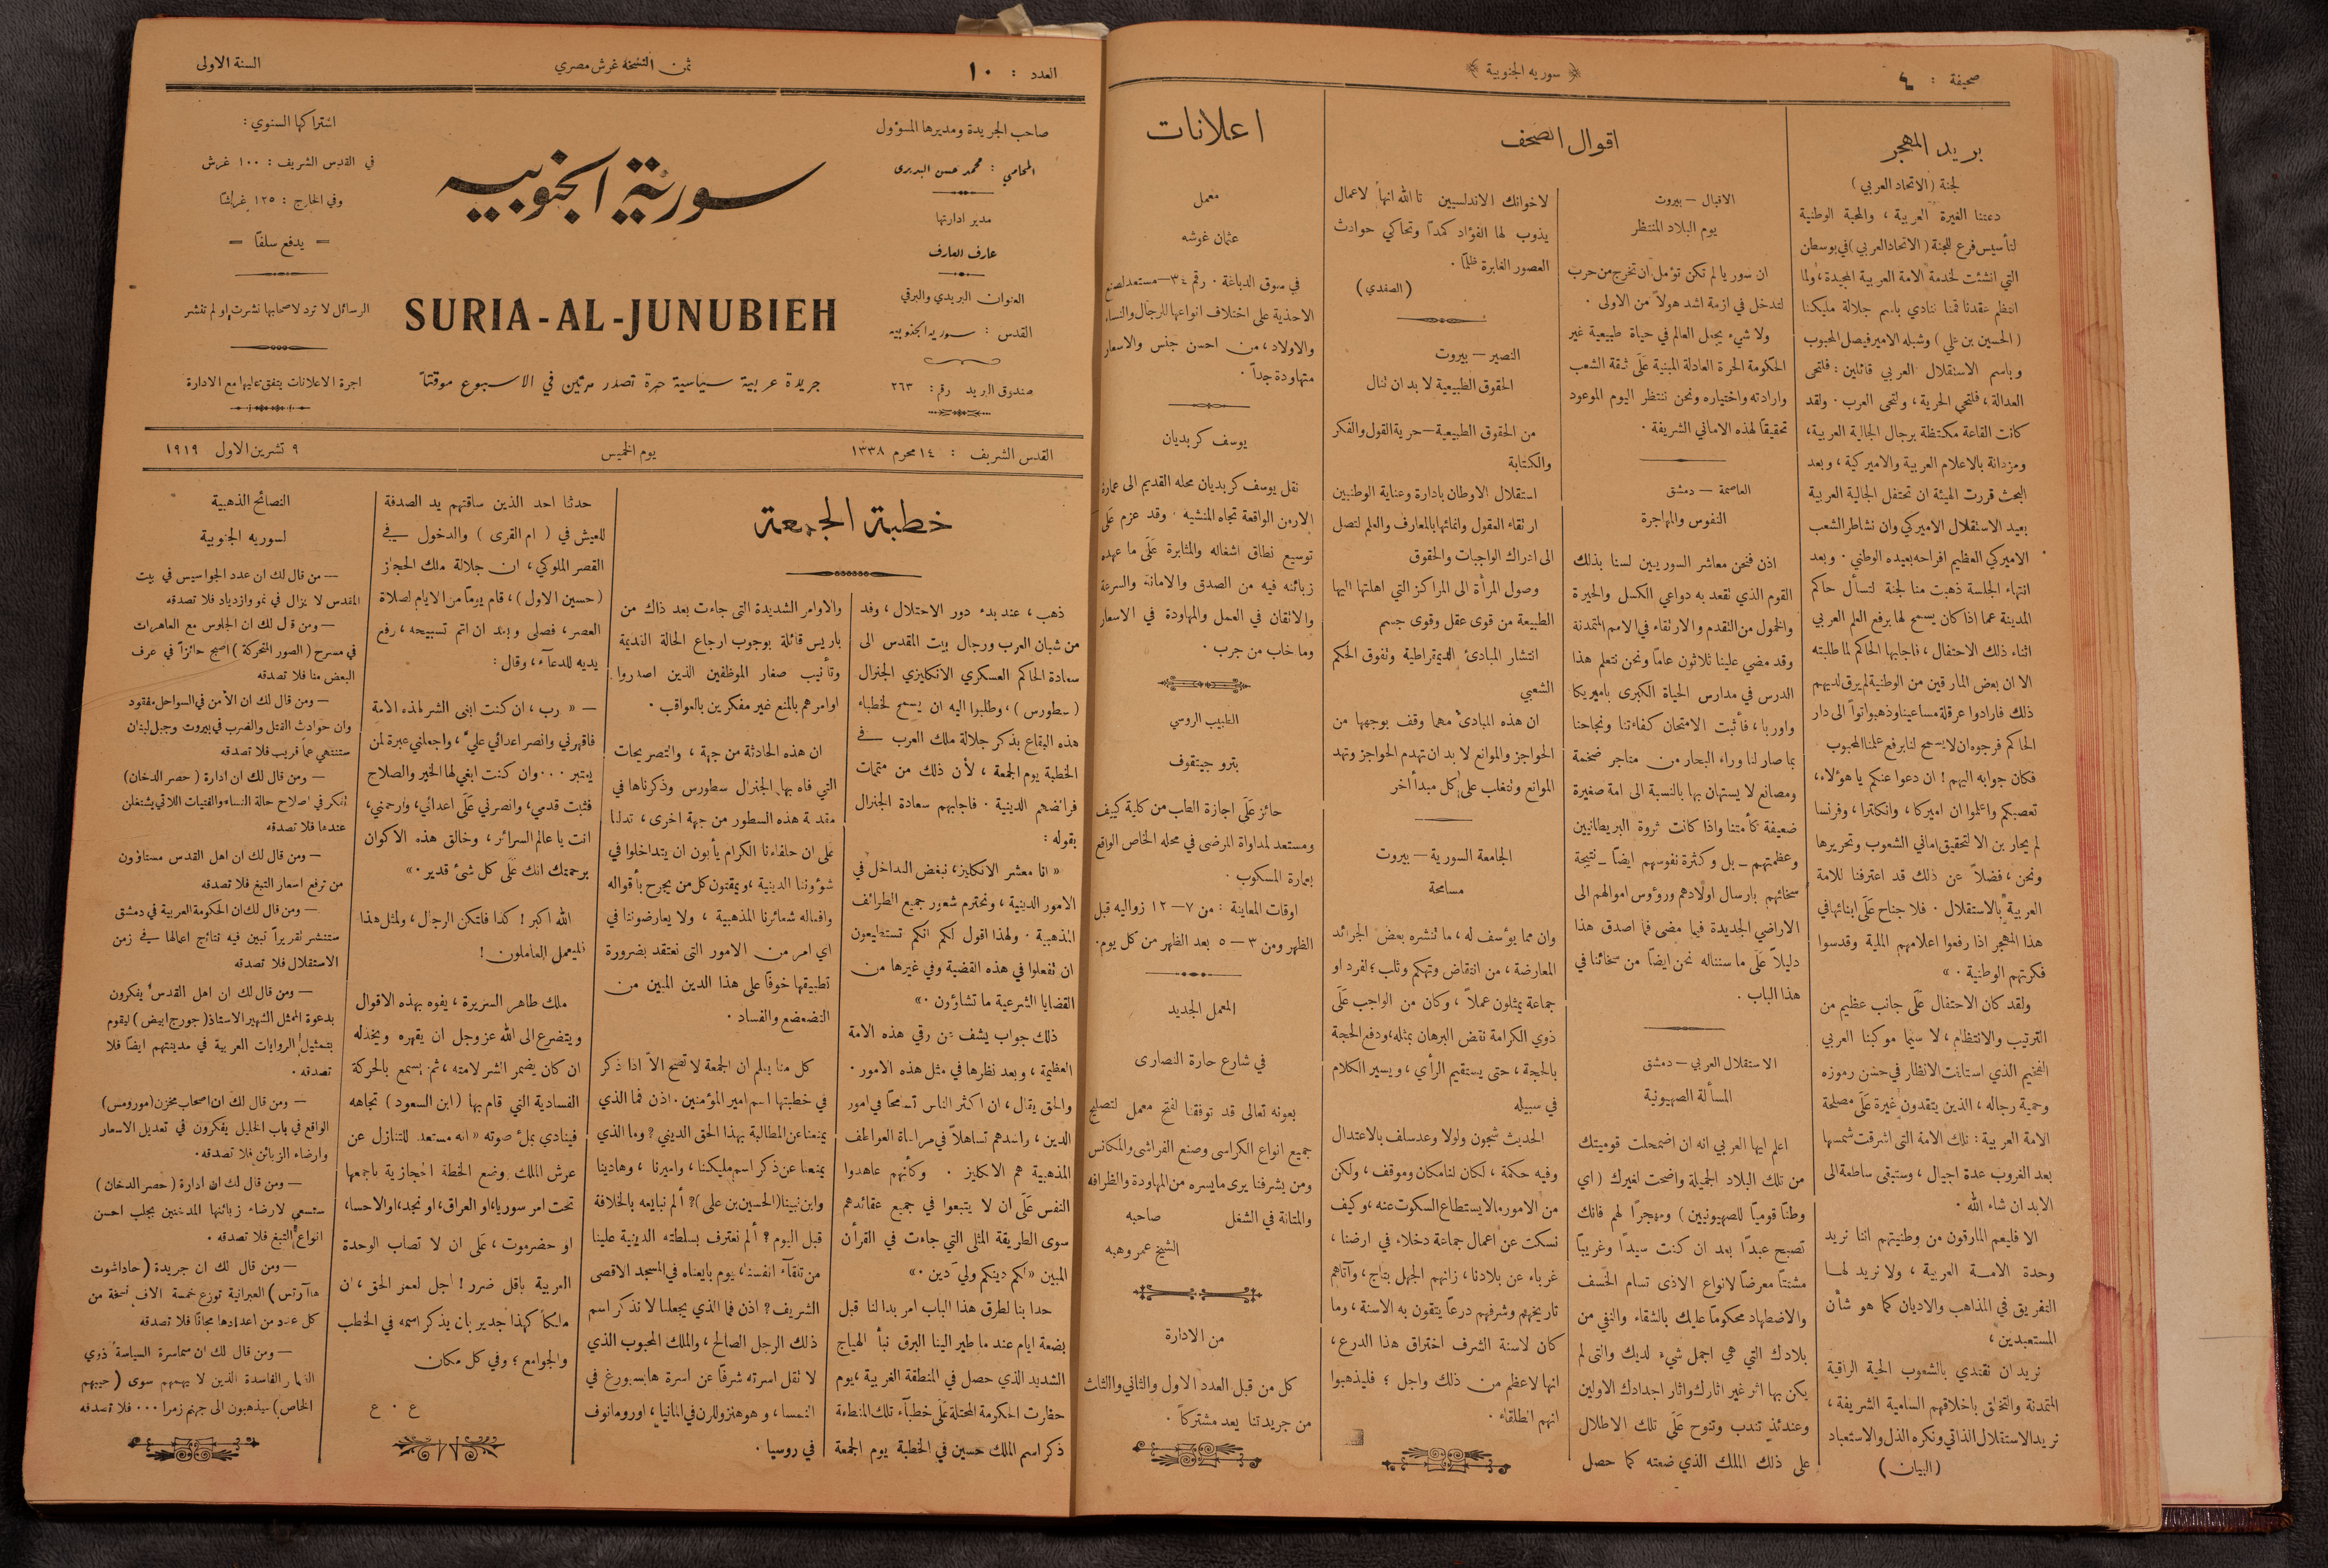 صحيفة : ٤
﴿ سوريه الجنوبية ﴾
بريد المهجر
لجنة (الاتحاد العربي)
دعتنا الغيرة العربية ، والمحبة الوطنية
لتأسيس فرع للجنة (الاتحاد العربي) في بوسطن
التي انشئت لخدمة الامة العربية المجيدة، ولما
انتظم عقدنا قمنا ننادي باسم جلالة مليكنا
(الحسين بن علي) وشبله الامير فيصل المحبوب
وباسم الاستقلال العربي قائلين : فلتحى
العدالة ، فلتحي الحرية ، ولتحى العرب . ولقد
كانت القاعة مكتظة برجال الجالية العربية،
ومزدانة بالاعلام العربية والاميركية ، وبعد
البحث قررت الهيئة ان تحتفل الجالية العربية
بعيد الاستقلال الاميركي وان نشاطر الشعب
الاميركي العظيم افراحه بعيده الوطني . وبعد
انتهاء الجلسة ذهبت منا لجنة لتسأل حاكم
المدينة عما اذا كان يسمح لها برفع العلم العربي
اثناء ذلك الاحتفال ، فاجابها الحاكم لما طلبته
الا ان بعض المارقين من الوطنية لم يرق لديهم
ذلك فارادوا عرقلة مساعينا وذهبوا تواً الى دار
الحاكم فرجوه ان لا يسمح لنا برفع علمنا المحبوب
فكان جوابه اليهم ! ان دعوا عنكم يا هؤلاء،
تعصبكم واعلموا ان اميركا ، وانكلترا ، وفرنسا
لم يحاربن الا لتحقيق اماني الشعوب وتحريرها
ونحن ، فضلاً عن ذلك قد اعترفنا للامة
العربية بالاستقلال . فلا جناح عَلَى ابنائها في
هذا المهجر اذا رفعوا اعلامهم الملية وقدسوا
فكرتهم الوطنية . »
ولقد كان الاحتفال عَلَى جانب عظيم من
الترتيب والانتظام ، لا سيما موكبنا العربي
الفخيم الذي استلفت الانظار في حسن رموزه
وحمية رجاله ، الذين يتقدون غيرة عَلَى مصلحة
الامة العربية : تلك الامة التى اشرقت شمسها
بعد الغروب عدة اجيال ، وستبقى ساطعة الى
الابد ان شاء الله .
الا فليعلم المارقون من وطنيتهم اننا نريد
وحدة الامة العربية ، ولا نريد لها
التفريق في المذاهب والاديان كما هو شأن
المستعبدين ،
نريد ان نقتدي بالشعوب الحية الراقية
المتمدنة والتخلق باخلاقهم السامية الشريفة ،
نريد الاستقلال الذاتي ونكره الذل والاستعباد
(البيان)
اقوال الصحف
الاقبال – بيروت
يوم البلاد المنتظر
ان سوريا لم تكن تؤمل ان تخرج من حرب
لتدخل في ازمة اشد هولاً من الاولى .
ولا شيء يجعل العالم في حياة طبيعية غير
الحكومة الحرة العادلة المبنية عَلَى ثقة الشعب
وارادته واختياره ونحن ننتظر اليوم الموعود
تحقيقاً لهذه الاماني الشريفة .
العاصمة – دمشق
النفوس والمهاجرة
اذن فنحن معاشر السوريين لسنا بذلك
القوم الذي تقعد به دواعي الكسل والحيرة
والخمول من التقدم والارتقاء في الامم المتمدنة
وقد مضي علينا ثلاثون عاماً ونحن نتعلم هذا
الدرس في مدارس الحياة الكبرى باميريكا
واوربا ، فأثبت الامتحان كفاءتنا ونجاحنا
بما صار لنا وراء البحار من متاجر ضخمة
ومصانع لا يستهان بها بالنسبة الى امة صغيرة
ضعيفة كأمتنا واذا كانت ثروة البريطانيين
وعظمتهم – بل وكثرة نفوسهم ايضاً – نتيجة
سخائهم بارسال اولادهم ورؤوس اموالهم الى
الاراضي الجديدة فيما مضى فما اصدق هذا
دليلاً عَلَى ما سنناله نحن ايضاً من سخائنا في
هذا الباب .
الاستقلال العربي – دمشق
المسألة الصهيونية
اعلم ايها العربي انه ان اضمحلت قوميتك
من تلك البلاد الجميلة واضحت لغيرك ( اي
وطناً قومياً للصهيونيين ) ومهجراً لهم فانك
تصبح عبداً بعد ان كنت سيداً وغريباً
مشتتاً معرضاً لانواع الاذى تسام الخسف
والاضطهاد محكوماً عليك بالشقاء والنفي من
بلادك التي هي اجمل شيء لديك والتى لم
يكن بها اثر غير اثارك واثار اجدادك الاولين
وعندئذٍ تندب وتنوح عَلَى تلك الاطلال
على ذلك الملك الذي ضعته كما حصل
لاخوانك الاندلسيين تا الله انها لاعمال
يذوب لها الفؤاد كمداً وتحاكي حوادث
العصور الغابرة ظلماً .
(الصفدي)
النصير – بيروت
الحقوق الطبيعية لا بد ان تنال
من الحقوق الطبيعية – حرية القول والفكر
والكتابة
استقلال الاوطان بادارة وعناية الوطنيين
ارتقاء العقول وانمائها بالمعارف والعلم لتصل
الى ادراك الواجبات والحقوق
وصول المرأة الى المراكز التي اهلتها اليها
الطبيعة من قوى عقل وقوى جسم
انتشار المبادئ الديمقراطية وتفوق الحكم
الشعبي
ان هذه المبادئ مهما وقف بوجهها من
الحواجز والموانع لا بد ان تهدم الحواجز وتهد
الموانع وتتغلب على كل مبدأ أخر
الجامعة السورية – بيروت
مسامحة
وان مما يؤسف له ، ما تنشره بعض الجرائد
المعارضة ، من انتقاض وتهكم وثلب ؛ لفرد او
جماعة يمثلون عملاً ، وكان من الواجب عَلَى
ذوي الكرامة نقض البرهان بمثله، ودفع الحجة
بالحجة ، حتى يستقيم الرأي ، ويسير الكلام
في سبيله
الحديث شجون ولولا وعد سلف بالاعتدال
وفيه حكمة ، لكان لنا مكان وموقف ، ولكن
من الامور ما لا يستطاع السكوت عنه ، وكيف
نسكت عن اعمال جماعة دخلاء في ارضنا ،
غرباء عن بلادنا ، زانهم الجهل بتاج ، وآتاهم
تاريخهم وشرفهم درعاً يتقون به الاسنة ، وما
كان لاسنة الشرف اختراق هذا الدرع ،
انها لاعظم من ذلك واجل ؛ فليذهبوا
انهم الطلقاء .
اعلانات
معمل
عثمان غوشه
في سوق الدباغة . رقم ٣٤ – مستعد لصنع
الاحذية على اختلاف انواعها للرجال والنساء
والاولاد ، من احسن جنس والاسعار
متهاودة جداً .
يوسف كربديان
نقل يوسف كربديان محله القديم الى عمارة
الارمن الواقعة تجاه المنشيه . وقد عزم عَلَى
توسيع نطاق اشغاله والمثابرة عَلَى ما عهده
زبائنه فيه من الصدق والامانة والسرعة
والاتقان في العمل والمهاودة في الاسعار
وما خاب من جرب .
الطبيب الروسي
بترو جيتقوف
حائز عَلَى اجازة الطب من كلية كييف
ومستعد لمداواة المرضى في محله الخاص الواقع
بعمارة المسكوب .
اوقات المعاينة : من ٧ – ١٢ زواليه قبل
الظهر ومن ٣ – ٥ بعد الظهر من كل يوم.
المعمل الجديد
في شارع حارة النصارى
بعونه تعالى قد توفقنا لفتح معمل لتصليح
جميع انواع الكراسى وصنع الفراشى والمكانس
ومن يشرفنا يرى ما يسره من المهاودة والظرافه
والمتانة في الشغل صاحبه
الشيخ عمر وهبه
من الادارة
كل من قبل العدد الاول والثاني والثالث
من جريدتنا يعد مشتركاً .
العدد : ١٠
ثمن النسخة غرش مصري
السنة الاولى
صاحب الجريدة ومديرها المسؤول
المحامي : محمد حسن البديرى
مدير ادارتها
عارف العارف
العنوان البريدي والبرقي
القدس : سوريه الجنوبيه
صندوق البريد رقم : ٢٦٣
سورية الجنوبيه
SURIA-AL-JUNUBIEH
جريدة عربية سياسية حرة تصدر مرتين في الاسبوع موقتاً
اشتراكها السنوي :
في القدس الشريف : ١٠٠ غرش
وفي الخارج : ١٢٥ غراشاً
– يدفع سلفاً –
الرسائل لا ترد لاصحابها نشرت او لم تنشر
اجرة الاعلانات يتفق عليها مع الادارة
القدس الشريف : ١٤ محرم ١٣٣٨
يوم الخميس
٩ تشرين الاول ١٩١٩
خطبة الجمعة
ذهب ، عند بدء دور الاحتلال ، وفد
من شبان العرب ورجال بيت المقدس الى
سعادة الحاكم العسكري الانكليزي الجنرال
(سطورس) ، وطلبوا اليه ان يسمح لخطباء
هذه البقاع بذكر جلالة ملك العرب في
الخطبة يوم الجمعة ، لأن ذلك من متمات
فرائضهم الدينية . فاجابهم سعادة الجنرال
بقوله :
« انا معشر الانكليز، نبغض التداخل في
الامور الدينية ، ونحترم شعور جميع الطوائف
المذهبية . ولهذا اقول لكم انكم تستطيعون
ان تفعلوا في هذه القضية وفي غيرها من
القضايا الشرعية ما تشاؤون . »
ذلك جواب يشف عن رقي هذه الامة
العظيمة ، وبعد نظرها في مثل هذه الامور .
والحق يقال ، ان اكثر الناس تسامحاً في امور
الدين ، واشدهم تساهلاً في مراعاة العواطف
المذهبية هم الانكليز . وكأنهم عاهدوا
النفس عَلَى ان لا يتبعوا في جميع عقائدهم
سوى الطريقة المثلى التي جاءت في القرأن
المبين « لكم دينكم ولي دين . »
حدا بنا لطرق هذا الباب امر بدا لنا قبل
بضعة ايام عند ما طير الينا البرق نبأ الهياج
الشديد الذي حصل في المنطقة الغربية ، يوم
حظرت الحكومة المحتلة عَلَى خطبآء تلك المنطقة
ذكر اسم الملك حسين في الخطبة يوم الجمعة
والاوامر الشديدة التى جاءت بعد ذاك من
باريس قائلة بوجوب ارجاع الحالة القديمة
وتأنيب صغار الموظفين الذين اصدروا
اوامرهم بالمنع غير مفكرين بالعواقب .
ان هذه الحادثة من جهة ، والتصريحات
التي فاه بها الجنرال سطورس وذكرناها في
مقدمة هذه السطور من جهة اخرى ، تدلنا
عَلَى ان حلفاءنا الكرام يأبون ان يتداخلوا في
شؤوننا الدينية ، ويمقتون كل من يجرح بأقواله
وافعاله شعائرنا المذهبية ، ولا يعارضوننا في
اي امر من الامور التى نعتقد بضرورة
تطبيقها خوفاً على هذا الدين المبين من
التضعضع والفساد .
كل منا يعلم ان الجمعة لا تصح الاّ اذا ذكر
في خطبتها اسم امير المؤمنين . اذن فما الذي
يمنعنا عن المطالبة بهذا الحق الديني ؟ وما الذي
يمنعنا عن ذكر اسم مليكنا ، واميرنا ، وهادينا
وابن نبينا (الحسين بن علي) ؟ ألم نبايعه بالخلافة
قبل اليوم ؟ ألم نعترف بسلطته الدينية علينا
من تلقآء انفسنا ، يوم بايعناه في المسجد الاقصى
الشريف ؟ اذن فما الذي يجعلنا لا نذكر اسم
ذلك الرجل الصالح ، والملك المحبوب الذي
لا تقل اسرته شرفاً عن اسرة هابسبورغ في
النمسا ، وهوهنزوللرن في المانيا ، اورومانوف
في روسيا .
حدثنا احد الذين ساقتهم يد الصدفة
للعيش في ( ام القرى ) والدخول في
القصر الملوكي ، ان جلالة ملك الحجاز
(حسين الاول) ، قام يوماً من الايام لصلاة
العصر ، فصلى وبعد ان اتم تسبيحه ، رفع
يديه للدعآء ، وقال :
– « رب ، ان كنت ابغى الشر لهذه الامة
فاقهرني وانصر اعدائي عليَّ ، واجعلني عبرة لمن
يعتبر ... وان كنت ابغي لها الخير والصلاح
فثبت قدمي ، وانصرني عَلَى اعدائي ، وارحمني ،
انت يا عالم السرائر ، وخالق هذه الاكوان
برحمتك انك عَلَى كل شئ قدير . »
الله اكبر ! كذا فلتكن الرجال ، ولمثل هذا
فليعمل العاملون !
ملك طاهر السريرة ، يفوه بهذه الاقوال
ويتضرع الى الله عز وجل ان يقهره ويخذله
ان كان يضمر الشر لامته ، ثم يسمع بالحركة
الفسادية التي قام بها (ابن السعود) تجاهه
فينادي بملء صوته « انه مستعد للتنازل عن
عرش الملك ووضع الخطة الحجازية باجمعها
تحت امر سوريا ، او العراق ، او نجد ، او الاحسا ،
او حضرموت ، عَلَى ان لا تصاب الوحدة
العربية باقل ضرر ! اجل لعمر الحق ، ان
ملكاً كهذا جدير بان يذكر اسمه في الخطب
والجوامع ؛ وفي كل مكان
ع . ع
النصائح الذهبية
لسوريه الجنوبية
– من قال لك ان عدد الجواسيس في بيت
المقدس لا يزال في نمو وازدياد فلا تصدقه
– ومن قال لك ان الجلوس مع العاهرات
في مسرح (الصور المتحركة) اصبح حائزاً في عرف
البعض منا فلا تصدقه
– ومن قال لك ان الأمن في السواحل مفقود
وان حوادث القتل والضرب في بيروت وجبل لبنان
ستنتهي عما قريب فلا تصدقه
– ومن قال لك ان ادارة (حصر الدخان)
تفكر في اصلاح حالة النساء والفتيات اللائي يشتغلن
عندها فلا تصدقه
– ومن قال لك ان اهل القدس مستاؤون
من ترفع اسعار التبغ فلا تصدقه
– ومن قال لك ان الحكومة العربية في دمشق
ستنشر تقريراً تبين فيه نتائج اعمالها في زمن
الاستقلال فلا تصدقه
– ومن قال لك ان اهل القدس يفكرون
بدعوة الممثل الشهير الاستاذ (جورج ابيض) ليقوم
بتمثيل الروايات العربية في مدينتهم ايضاً فلا
تصدقه .
– ومن قال لك ان اصحاب مخزن (مورومس)
الواقع في باب الخليل يفكرون في تعديل الاسعار
وارضاء الزبائن فلا تصدقه .
– ومن قال لك ان ادارة (حصر الدخان)
ستسعى لارضاء زبائنها المدخنين بجلب احسن
انواع التبغ فلا تصدقه .
– ومن قال لك ان جريدة (حاداشوت
هاآرتس) العبرانية توزع خمسة الاف نسخة من
كل عدد من اعدادها مجاناً فلا تصدقه
– ومن قال لك ان سماسرة السياسة ذوي
الفاسدة الذين لا يهمهم سوى (جيبهم
الخاص) سيذهبون الى جهنم زمرا ... فلا تصدقه